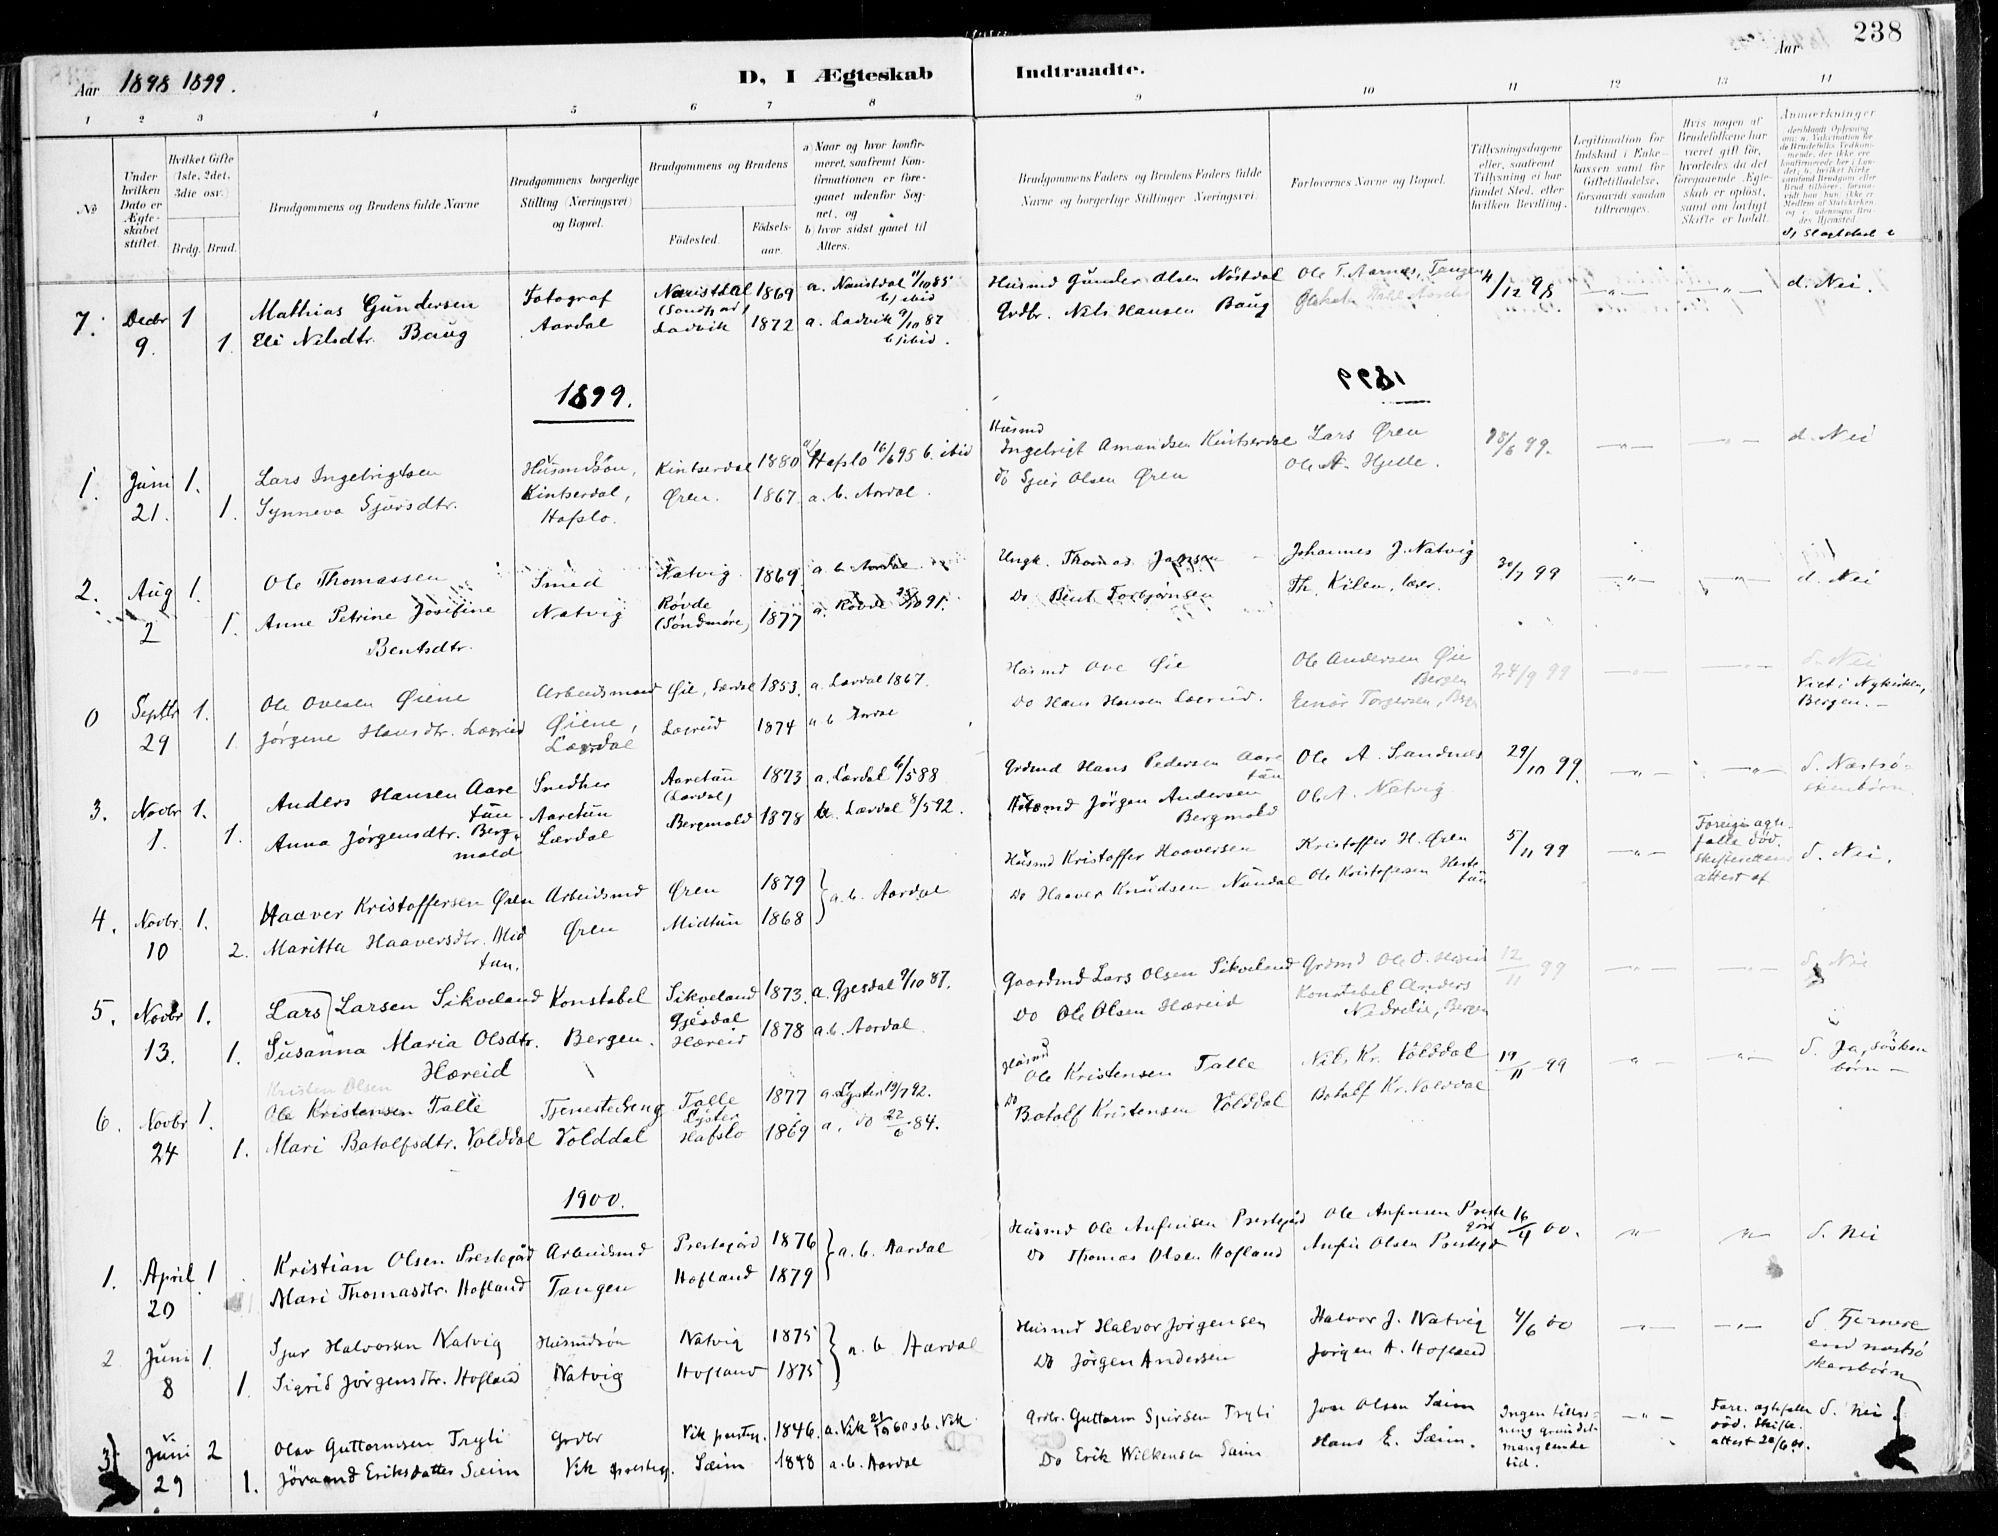 Aar 1898 1899.
D, I Ægteskab Indtraadte.
Aar
238
1 2 3 4 5 6 7 8 9 10 11 12 13 14
No
Under hvilken Dato er Ægteskabet stiftet.
Hvilket Gifte (1ste, 2det, 3die osv.)
Brdg. Brud.
Brudgommens og Brudens fulde Navne
Brudgommens borgerlige Stilling (Næringsvei) og Bopæl.
Brudgommens og Brudens
Födested. Födsels-aar.
a) Naar og hvor konfirmeret, saafremt Konfirmationen er foregaaet udenfor Sognet, og
b) hvor sidst gaaet til Alters.
Brudgommens Faders og Brudens Faders fulde Navne og borgerlige Stillinger Næringsvei.
Forlovernes Navne og Bopæl.
Tillysningsdagene eller, saafremt Tillysning ei har fundet Sted, efter hvilken Bevilling.
Legitimation for Indskud i Enkekassen samt for Giftetilladelse, forsaavidt saadan tiltrænges.
Hvis nogen af Brudefolkene har været gift før, hvorledes da det foregaaende Ægteskab er opløst, samt om lovligt Skifte er holdt.
Anmerkninger
7. Decbr 9. 1 Mathias Gundersen Fotograf Naustdal (Sondfjord) 1869 a. Naustdal 11/10 85 b) ibid Husmd Gunder Olsen Nöstdal Ole T. Aarnes, Tangen 4/12 98 d. Nei.
1. Eli Nilsdtr. Baug Aardal Ladvik 1872 a. Ladvik 9/10 87 b) ibid. Grdbr. Nils Hansen Baug
1899. 1899
1. Juni 21. 1. Lars Ingebrigtsen Husmdsøn, Kintserdal 1880 Hafslo 16/6 95 b. ibid Husmd Ingebrigt Amundsen Kintserdal Lars Øren 18/6 99. d. Nei
1. Synneva Sjursdtr. Kintserdal, Hafslo. Øren. 1867. a. b. Aardal. Do Sjur Olsen Øren Ole A. Hjelle.
2. Aug 2 1. Ole Thomassen Smed Natvig 1869 a. b. Aardal Ungk. Thomas Jansen Johannes J. Natvig 30/7 99 d. Nei
1. Anne Petrine Josefine Bentsdtr. Natvig Røvde (Søndmøre) 1877 a. Røvde 25/10 91. Do Bent Torbjørnsen Th. Kilen, lærer.
0 Septbr 29 1. Ole Ovesen Øiene Arbeidsmand Øie, Lærdal 1853. a. Lærdal 1867. Husmd Ove Øie Ole Andersen Øie Bergen 24/9 99 d. Nei
1. Jørgene Hansdtr. Lægreid Øiene, Lærdal Lægreid 1874 a b Aardal Do Hans Hansen Lægreid. Einar Torgersen, Bergen Viet i Nykirken, Bergen.
3. Novbr 1. 1. Anders Hansen Aaretun Snedker Aaretun (Lærdal) 1873 a. Lærdal 6/5 88 Grdmd Hans Pedersen Aaretun Ole A. Sandnæs 29/10 99. d. Næstsøskenbørn.
1. Anna Jørgensdtr. Bergmold Aaretun Lærdal Bergmold 1878 a. Lærdal 8/5 92. Husmd Jörgen Andersen Bergmold Ole A. Natvig
4. Novbr. 10 1. Haaver Kristoffersen Øren Arbeidsmd Øren 1879 a. b. Aardal Husmd Kristoffer Haaversen Kristoffer H. Øren 5/11 99 d. Nei.
2. Maritta Haaversdtr. Midtun. Øren Midtun 1868 Do Haaver Knudsen Nundal Ole Kristofersen Hestetun
5. Novbr 13. 1. Lars Larsen Sikveland Konstabel Sikveland Gjesdal 1873. a. Gjesdal 9/10 87. Gaardmd Lars Olsen Sikveland Grdmd Ole O. Hæreid 12/11 99 d. Nei
1. Susanna Maria Olsdtr. Hæreid Bergen. Hæreid 1878 a. b. Aardal. Do Ole Olsen Hæreid Konstabel Anders Nedrelie, Bergen
Kristen Olsen
6. Novbr 24 1. Ole Kristensen Talle Tjenestedreng Talle Lyster 1877 a. Lyster 19/7 92. Husmd Ole Kristensen Talle Nils Kr. Volddal 19/11 99 d. Ja, søskenbörn
1. Mari Botolfsdtr. Volddal Volddal Hafslo 1869 a. Do 22/6 84. Do Botolf Kristensen Volddal Botolf Kr. Volddal
1900.
1. April 20 1 Kristian Olsen Prestegård Arbeidsmd Prestegård 1876 a. b. Aardal Husmd Ole Anfinsen Prestegård Ole Anfinsen Prestegård 16/4 00. d. Nei
Mari Thomasdtr. Hofland Tangen Hofland 1879 Do Thomas Olsen Hofland Anfin Olsen Prestegd
2 Juni 8 1. Sjur Halvorsen Natvig Husmdsön Natvig 1875 a. b Aardal Husmd Halvor Jörgensen Halvor J. Natvig 4/6 00 d Fjernere end næstsöskenbörn
1. Sigrid Jörgensdtr. Hofland Natvig Hofland 1875 Do Jörgen Andersen Jörgen A. Hofland
3 Juni 29 2 Olav Guttormsen Tryti Grdbr Vik prestegj. 1846. a. Vik 21/10 60 b. Vik Grdbr. Guttorm Sjursen Tryti Jon Olsen Sæim Ingen tillysning grundet manglende tid. Fore. ægtefelle død. Skifteattest 20/6 00. d. Nei
1. Jörand Eriksdatter Sæim Vik prestegj. Sæim 1848 a. b. Aardal Do Erik Wilkensen Sæim Hans E. Sæim.